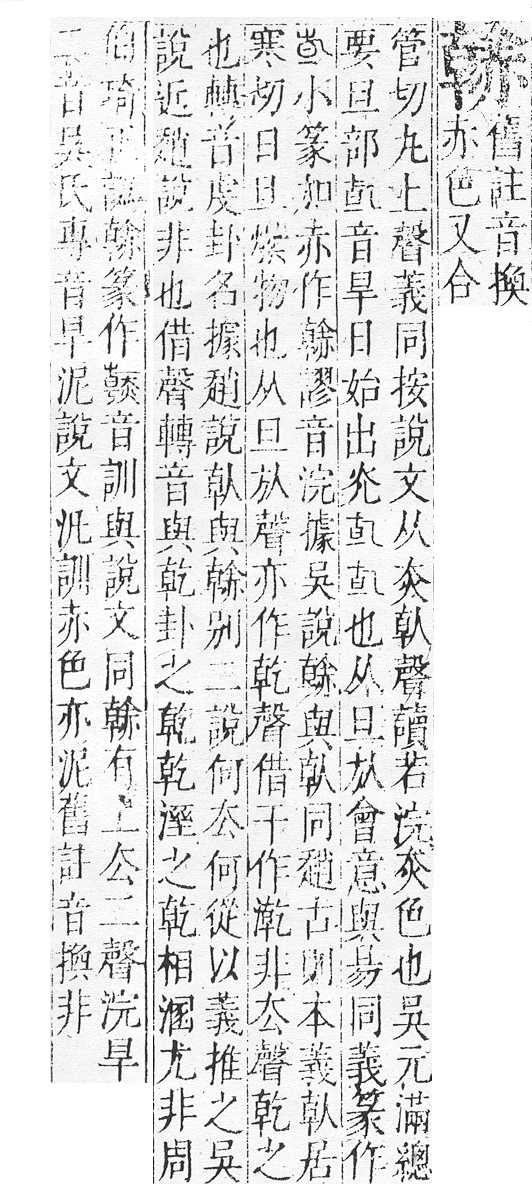 𧹳
舊註音換
赤色又合
管切丸上聲義同按說文从赤倝聲讀若浣赤色也吳元滿總
要旦部倝音旱日始出光倝倝也从旦㫃會意與昜同義篆作
𠦝小篆加赤作𧹳謬音浣據吳說𧹳與倝同趙古則本義倝居
寒切日旦燥物也从旦㫃聲亦作乾聲借干作漧非去聲乾之
也轉音虔卦名據趙說倝與𧹳別二說何去何從以義推之吳
說近趙說非也借聲轉音與乾卦之乾乾溼之乾相溷尤非周
伯琦正譌𧹳篆作音訓與說文同𧹳有上去二聲浣旱
二音吳氏專音旱泥說文泥訓赤色亦泥舊註音換非